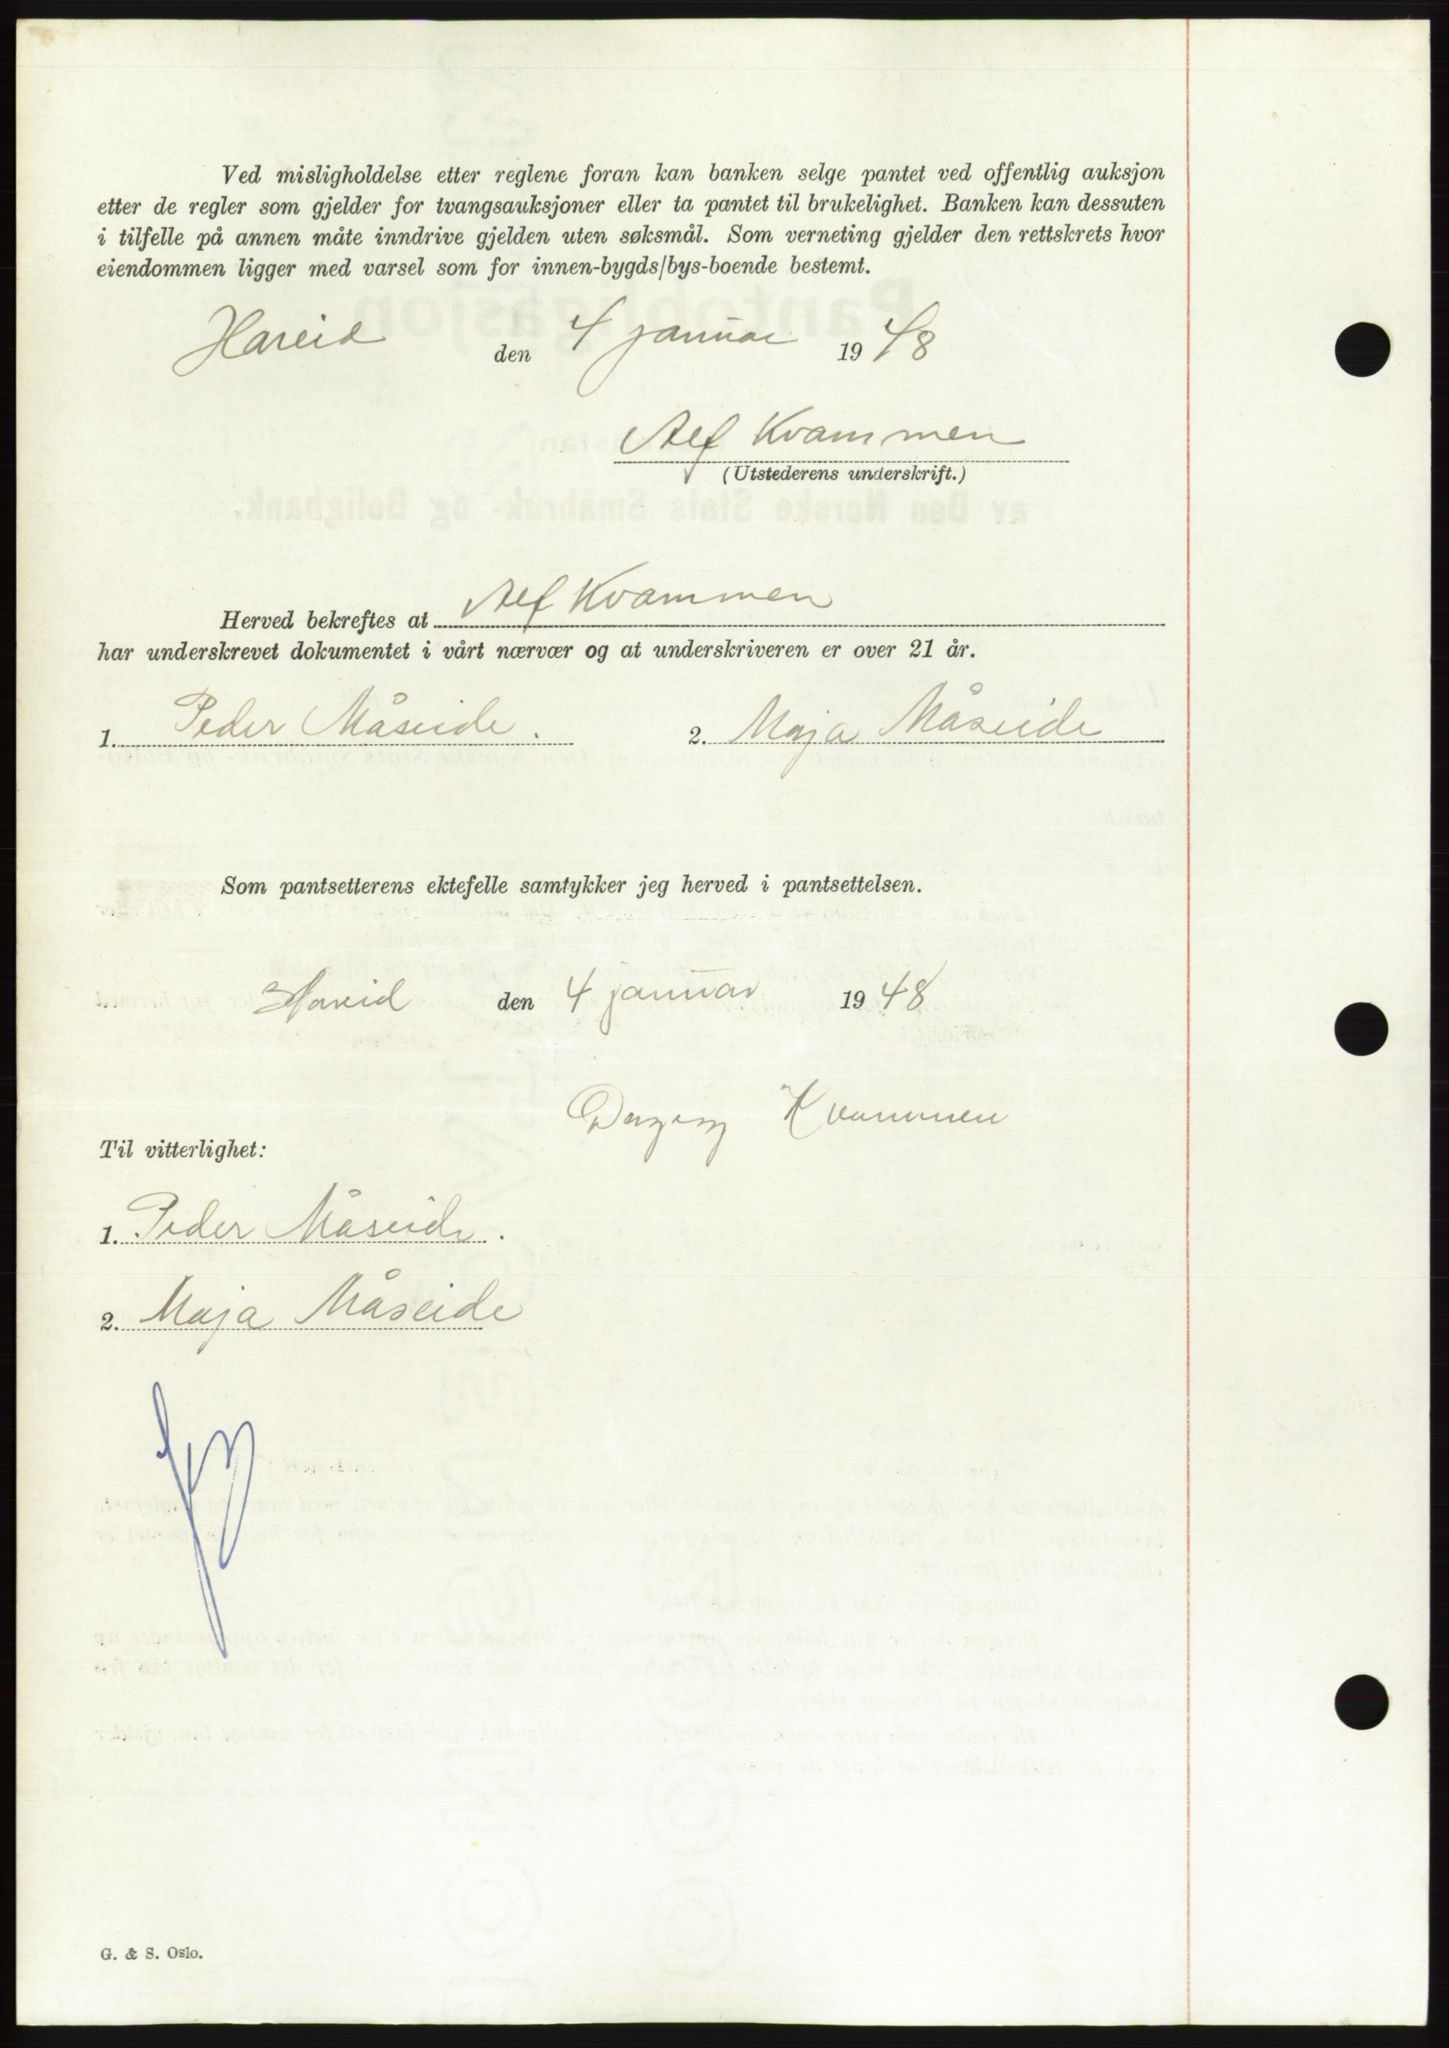 Ved misligholdelse etter reglene foran kan banken selge pantet ved offentlig auksjon
etter de regler som gjelder for tvangsauksjoner eller ta pantet til brukelighet. Banken kan dessuten
i tilfelle på annen måte inndrive gjelden uten søksmål. Som verneting gjelder den rettskrets hvor
eiendommen ligger med varsel som for innen-bygds/bys-boende bestemt.
Hareid den 4 januar 1948
Alf Kvammen
(Utstederens underskrift.)
Herved bekreftes at Alf Kvammen
har underskrevet dokumentet i vårt nærvær og at underskriveren er over 21 år.
1. Peder Måseide. 2. Maja Måseide
Som pantsetterens ektefelle samtykker jeg herved i pantsettelsen.
Hareid den 4 januar 1948
Kvammen
Til vitterlighet:
1. Peder Måseide.
2. Maja Måseide
G. & S. Oslo.